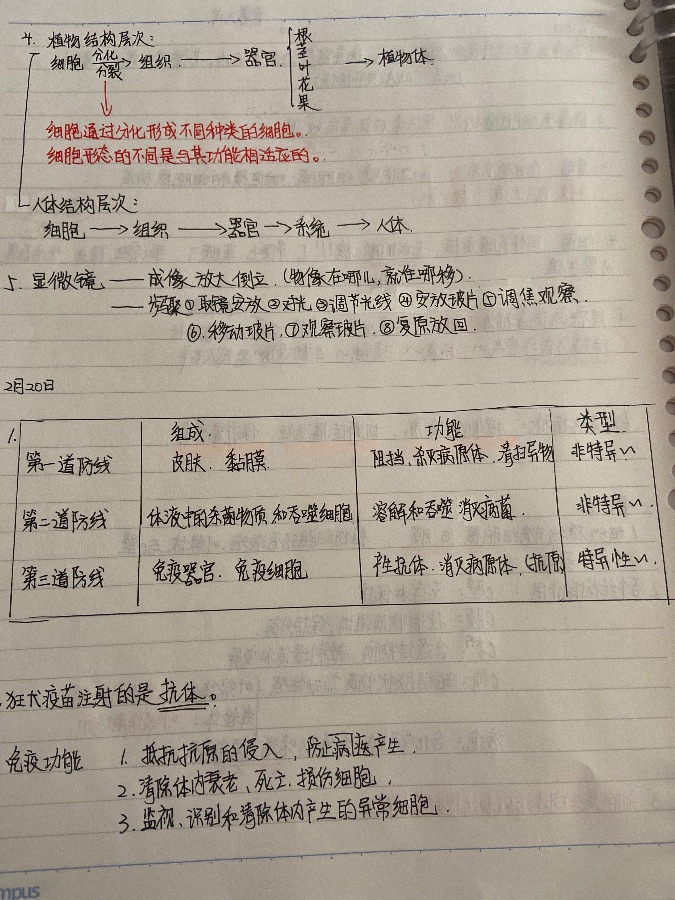 4. 植物结构层次:
细胞 分化 分裂 → 组织 → 器官 { 根 茎 叶 花 果 → 植物体.
细胞通过分化形成不同种类的细胞。
细胞形态的不同是与其功能相适应的。
人体结构层次:
细胞 → 组织 → 器官 → 系统 → 人体.
5. 显微镜 — 成像 放大倒立. (物像在哪儿,就往哪移)
— 步骤 ① 取镜安放 ② 对光 ③ 调节光线 ④ 安放玻片 ⑤ 调焦观察.
⑥. 移动玻片. ⑦ 观察玻片. ⑧ 复原放回.
2月20日
1. 组成. 功能 类型
第一道防线 皮肤. 黏膜. 阻挡、杀灭病原体、清扫异物 非特异~
第二道防线 体液中的杀菌物质和吞噬细胞 溶解和吞噬 消灭病菌. 非特异~.
第三道防线 免疫器官. 免疫细胞 产生抗体. 消灭病原体. (抗原) 特异性~.
狂犬疫苗注射的是抗体。
免疫功能 1. 抵抗抗原的侵入, 防止病医产生.
2. 清除体内衰老、死亡. 损伤细胞.
3. 监视、识别和清除体内产生的异常细胞.
mpus